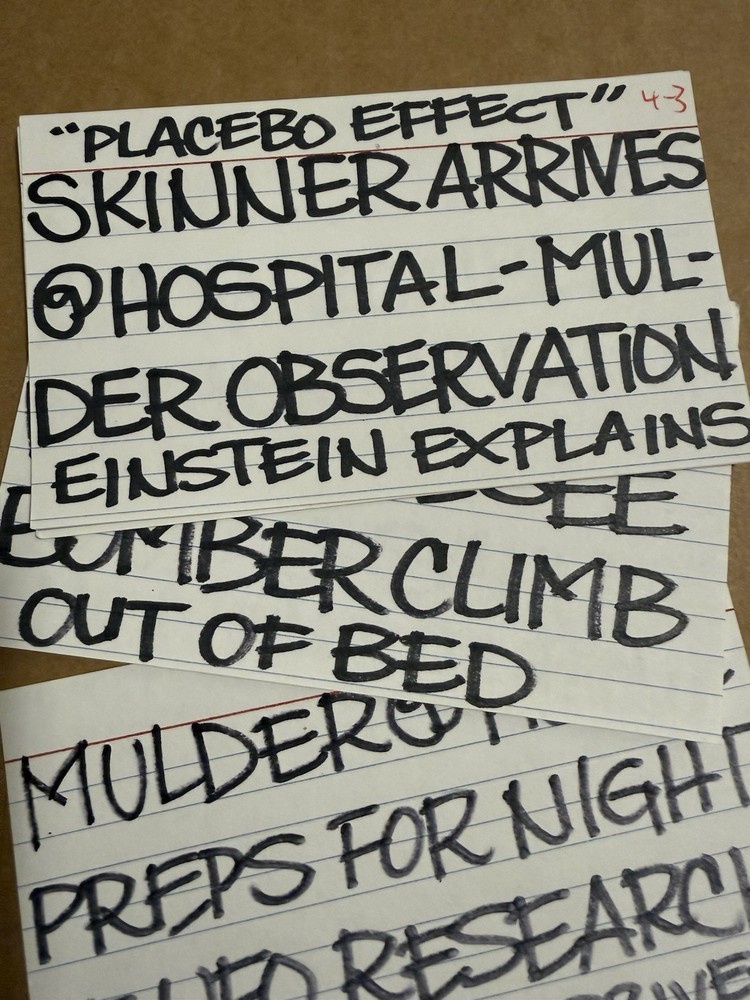 "PLACEBO EFFECT" 4-3
SKINNER ARRIVES
@HOSPITAL-MUL-
DER OBSERVATION
EINSTEIN EXPLAINS
SEE
BOMBER CLIMB
OUT OF BED
MULDER @
PREPS FOR NIGHT
UFO RESEARCH